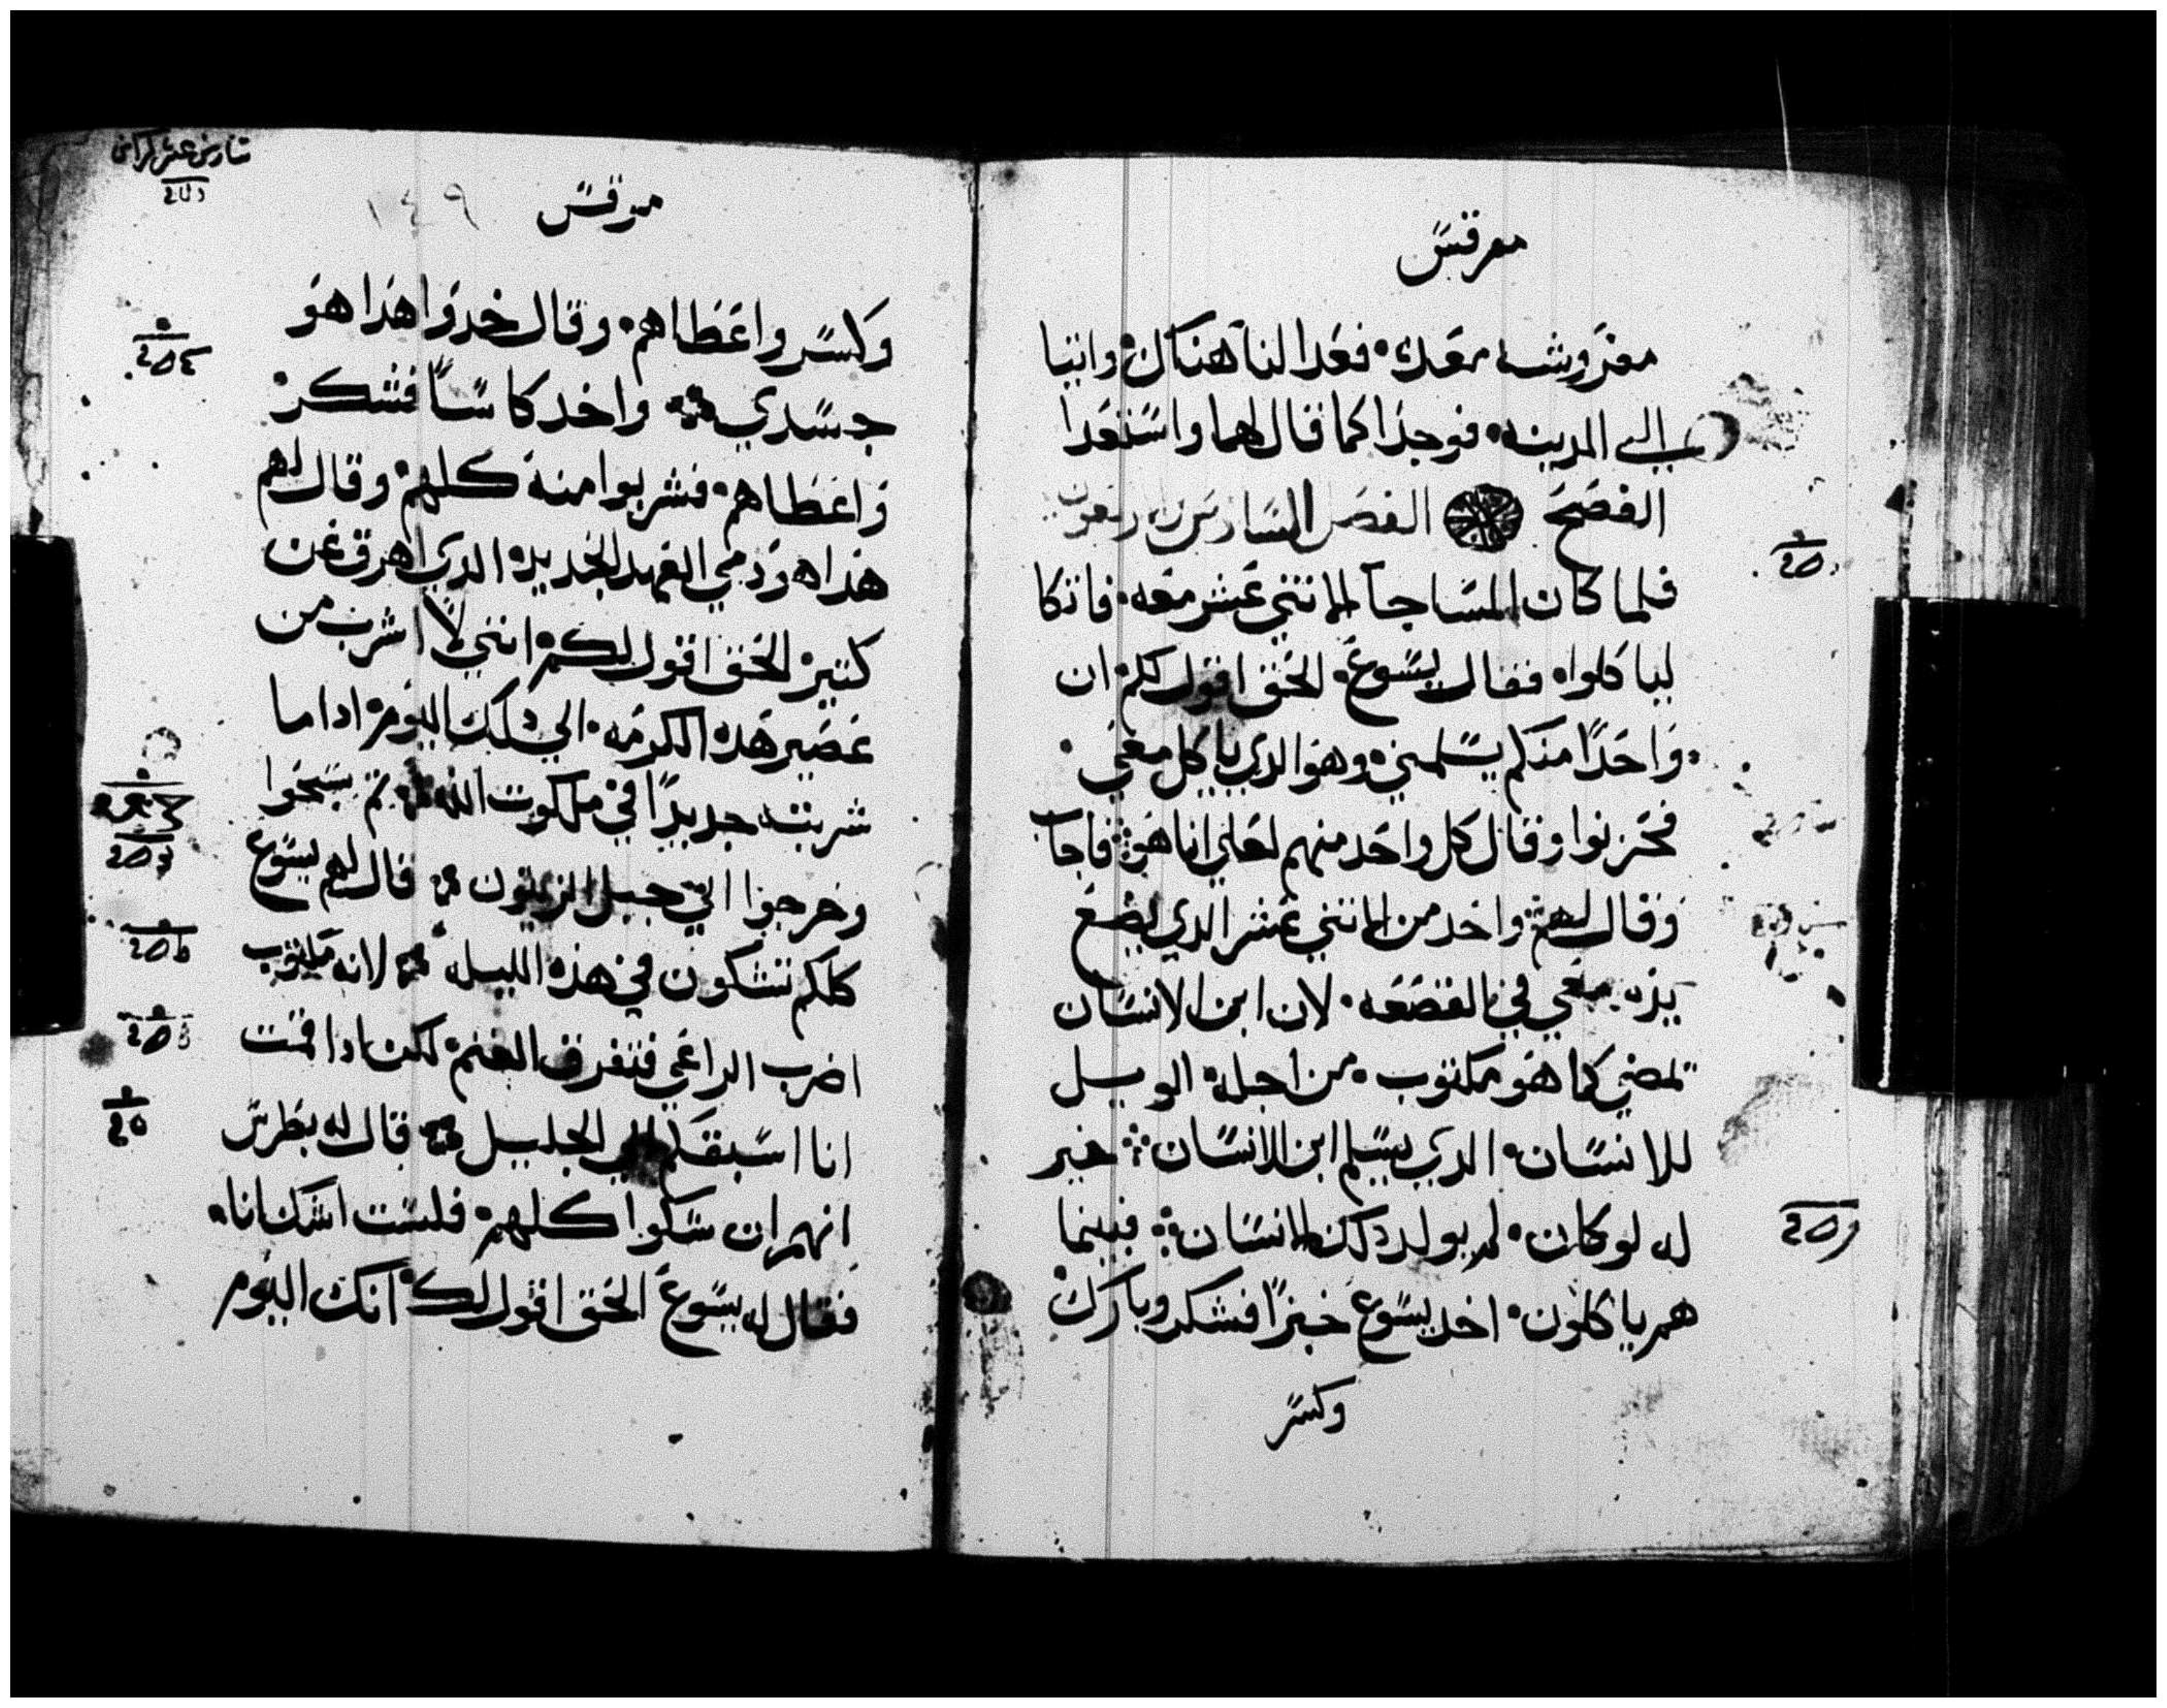 مرقس
مفروشه معده فعدا لنا هناك واتيا
الى المدينه فوجدا كما قال لهما واستعدا
الفصح الفصل السادس واربعون
فلما كان المسا جا الاتني عشر معه فاتكا
لياكلوا فقال يسوع الحق اقول لكم ان
واحدًا منكم يسلمني وهو الدي ياكل معي
فحزنوا وقال كل واحد منهم لعلي انا هو فاجاب
وقال لهم واحد من الاتني عشر الدي يضع
يده معي في القصعه لان ابن الانسان
يمضي كما هو مكتوب من اجله الويل
للانسان الدي يسلم ابن الانسان خير
له لو كان لم يولد دلك الانسان فبينما
هم ياكلون اخد يسوع خبزًا فشكر وبارك
وكسر
مرقس
١٤٩
وكسر واعطاهم وقال خدوا هدا هو
جسدي واخد كاسًا فشكر
واعطاهم فشربوا منه كلهم وقال لهم
هدا هو دمي العهد الجديد الدي اهرق عن
كتير الحق اقول لكم انني لا اشرب من
عصير هده الكرمه الي دلك اليوم ادا ما
شربته جديدًا في ملكوت الله تم سبحوا
وخرجوا الي جبل الزيتون قال لهم يسوع
كلكم تشكون في هذه الليله لانه مكتوب
اضرب الراعي فتفرق الغنم لكن ادا قمت
انا اسبقكم الي الجليل قال له بطرس
انهم ان شكوا كلهم فلست اشك انا
فقال له يسوع الحق اقول لك انك اليوم